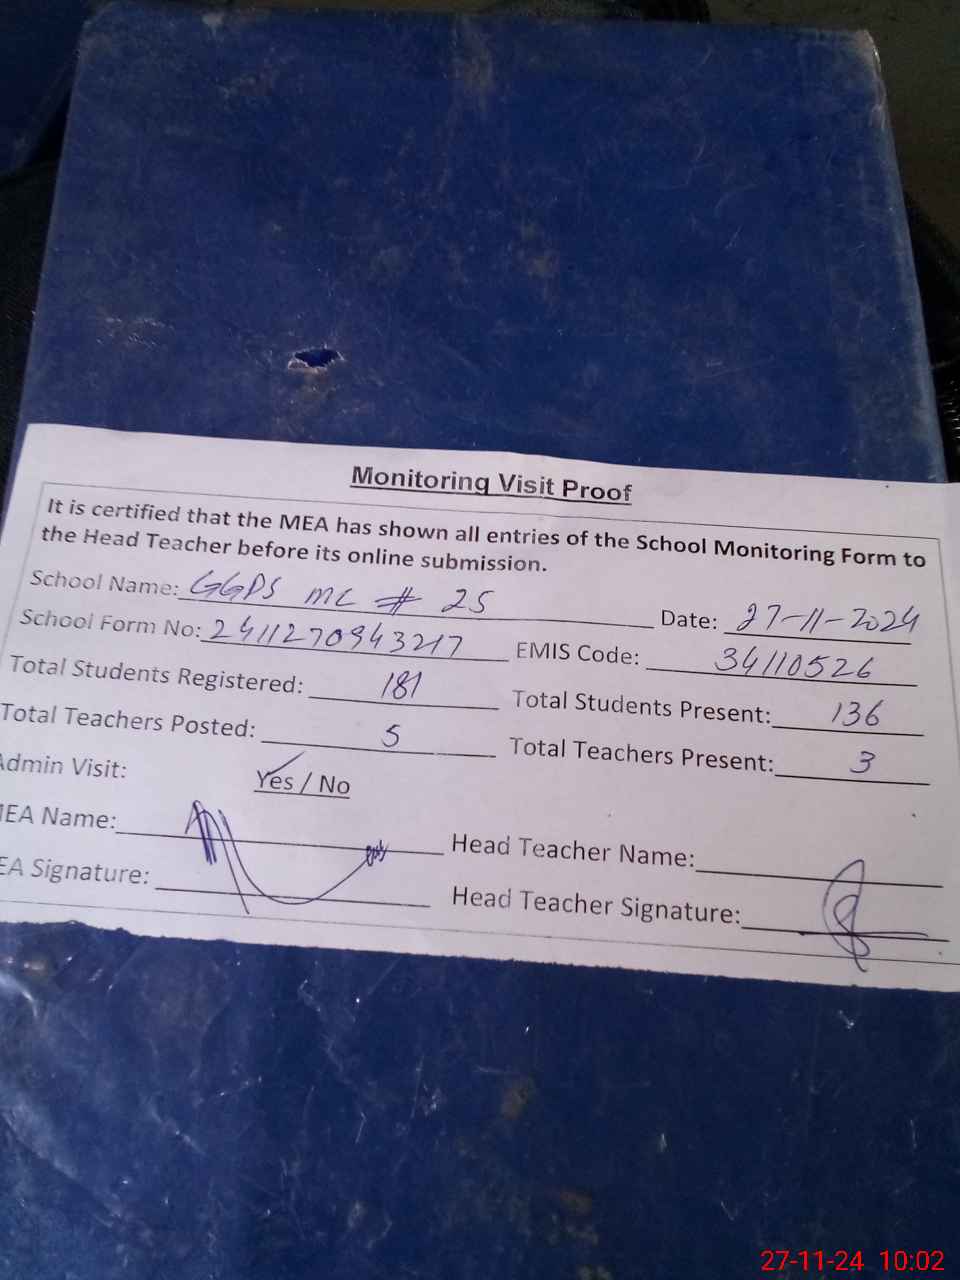 Monitoring Visit Proof
It is certified that the MEA has shown all entries of the School Monitoring Form to
the Head Teacher before its online submission.
School Name: GGPS MC # 25 Date: 27-11-2024
School Form No: 2411270943217 EMIS Code: 34110526
Total Students Registered: 181 Total Students Present: 136
Total Teachers Posted: 5 Total Teachers Present: 3
Admin Visit: Yes / No
MEA Name: Head Teacher Name:
EA Signature: Head Teacher Signature:
27-11-24 10:02